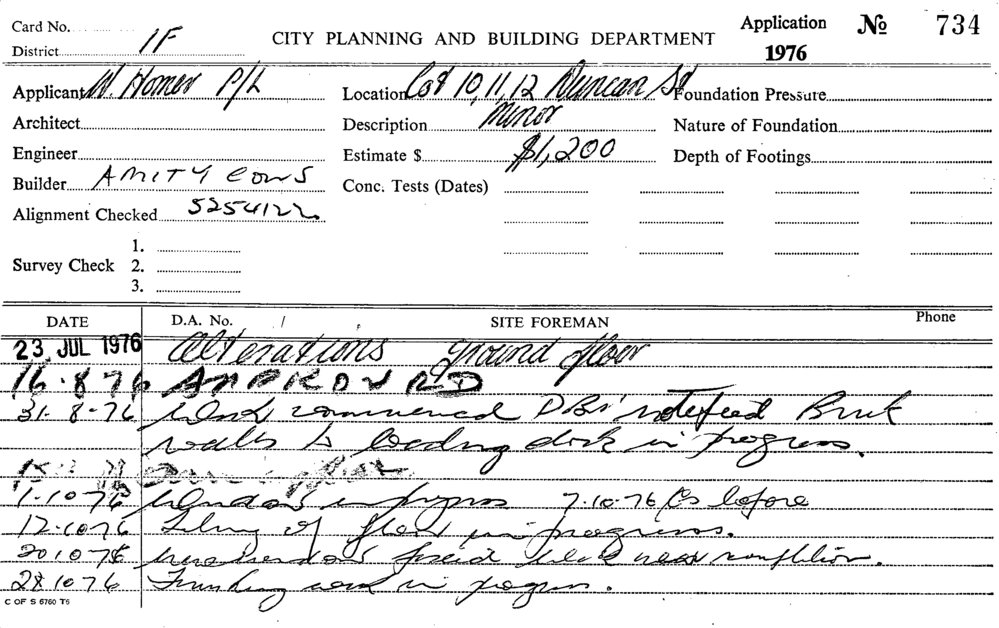 Card No.
District 1F
CITY PLANNING AND BUILDING DEPARTMENT
Application № 734
1976
Applicant W. Homer P/L
Location Lot 10, 11, 12 Duncan St
Foundation Pressure
Architect
Description Minor
Nature of Foundation
Engineer
Estimate $ $1,200
Depth of Footings
Builder AMITY CONS
Conc. Tests (Dates)
Alignment Checked 5254122
1.
Survey Check 2.
3.
DATE D.A. No. / SITE FOREMAN Phone
23 JUL 1976 Alterations ground floor
16·8·76 APPROVED
31·8·76 Work commenced DBS notified Brick
walls to loading dock in progress.
1·10·76 in progress 7·10·76 as before
12·10·76 of floor in progress.
20 10 76 work near completion.
28 10 76 Finishing work in progress.
C OF S 6760 T6